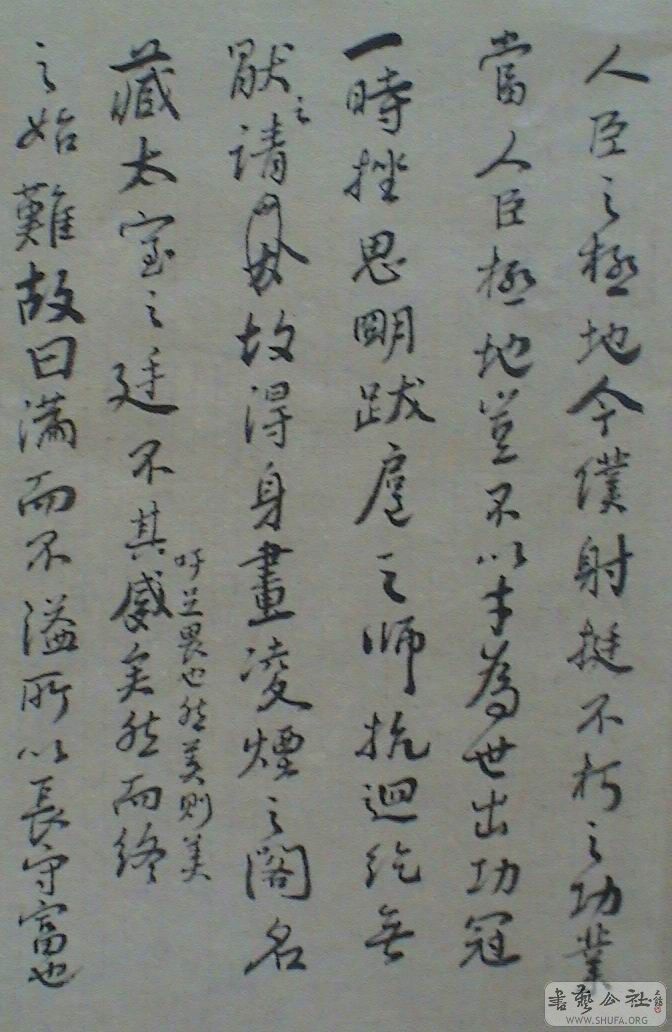 人臣之極地今僕射挺不朽之功業
當人臣極地豈不以才為世出功冠
一時挫思明跋扈之師抗迴紇無
猒之請故得身畫凌煙之閣名
藏太室之廷不其盛矣然而終
吁足畏也然美則美
之始難故曰滿而不溢所以長守富也
書藝公社
WWW.SHUFA.ORG